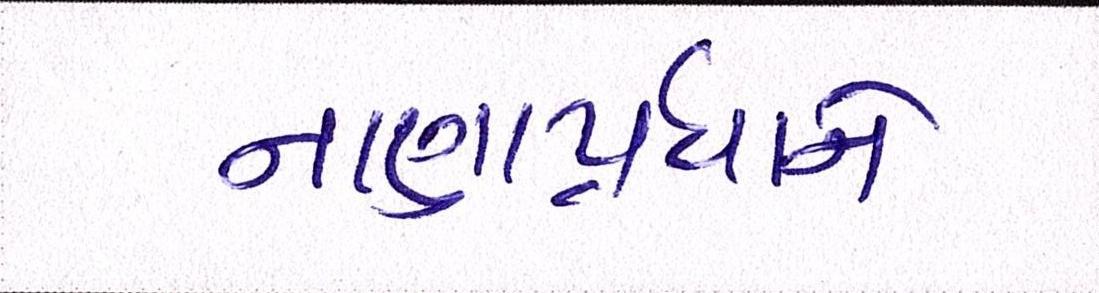 નાણાપ્રધાને